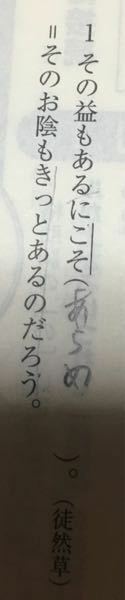 1 その益もあるにこそ(あらめ)。(徒然草)
=そのお陰もきっとあるのだろう。